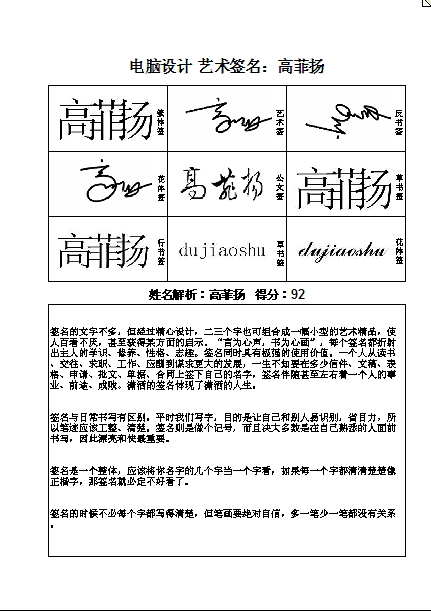 电脑设计 艺术签名：高菲扬
高菲扬 繁体签
艺术签
反书签
花体签
高菲扬 公文签
高菲扬 草书签
高菲扬 行书签
dujiaoshu 草书签
dujiaoshu 花体签
姓名解析：高菲扬 得分：92
签名的文字不多，但经过精心设计，二三个字也可组合成一幅小型的艺术精品，使
人百看不厌，甚至获得某方面的启示。“言为心声，书为心画”，每个签名都折射
出主人的学识、修养、性格、志趣。签名同时具有极强的使用价值。一个人从读书
、交往、求职、工作、应酬到谋求更大的发展，一生不知要在多少信件、文稿、表
格、申请、批文、单据、合同上签下自己的名字，签名伴随甚至左右着一个人的事
业、前途、成败。潇洒的签名体现了潇洒的人生。
签名与日常书写有区别。平时我们写字，目的是让自己和别人易识别，省目力，所
以笔迹应该工整、清楚。签名则是做个记号，而且决大多数是在自己熟悉的人面前
书写，因此漂亮和快最重要。
签名是一个整体，应该将你名字的几个字当一个字看，如果每一个字都清清楚楚像
正楷字，那签名就必定不好看了。
签名的时候不必每个字都写得清楚，但笔画要绝对自信，多一笔少一笔都没有关系
。